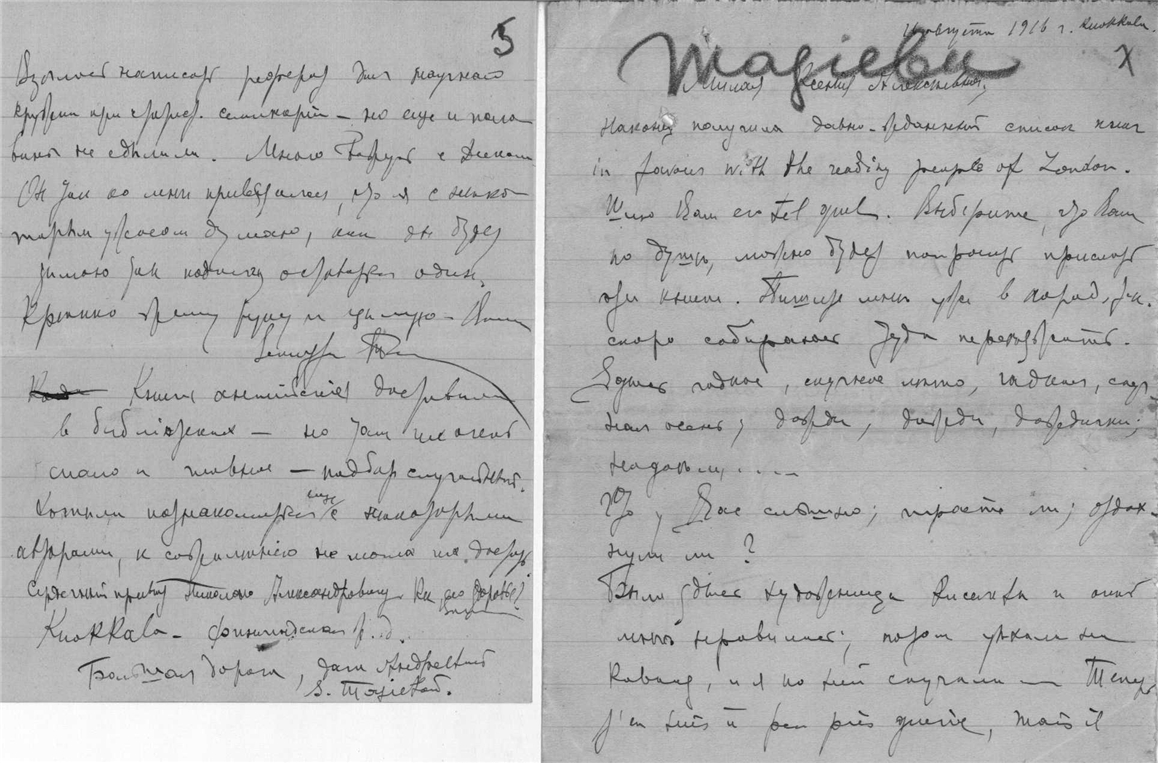 5
Взялась написать реферат для научного
кружка при  семинарии – но еще и поло
вины не сделали. Много
Он так ко мне привязался, что я с неко-
торым ужасом думаю, как он будет
зимою там подолгу оставаться один.
Крепко жму руку и целую – Ваша
Книги английские доставали
в библиотеках – но там их очень
мало и главное – подбор случайный.
Хотели познакомиться еще с некоторыми
авторами, к сожалению не могла их достать.
Сердечный привет Николаю Александровичу. Как его здоровье?
Kuokkala – Финляндская ж.д.
Большая дорога, дача
августа 1916 г. Kuokkala.
Тагіевы
X
Милая Ксения Алексеевна,
Наконец получила давно-жданный список книг
in favour with the reading people of London.
Шлю Вам его tel quel. Выберите, что Вам
по душе, можно будет попросить прислать
эти книги. Пишите мне уже в город, т.к.
скоро собираемся туда переезжать.
Здесь гадкое, скучное лето, гадкая, скуч-
ная осень; дожди, дожди, дождички;
надоели.....
Что у Вас слышно; играете ли; отдох-
нули ли?
Была здесь художница и очень
мне нравилась; потом уехала на
Кавказ, и я по ней скучала — Теперь
j'en suis à peu près guérie, mais il